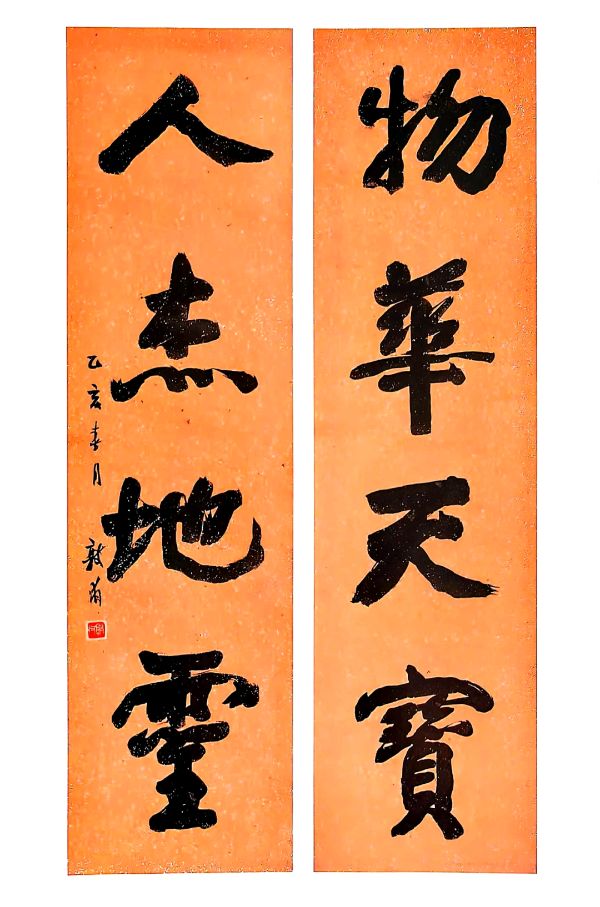 物華天寶
人杰地靈
乙亥春月